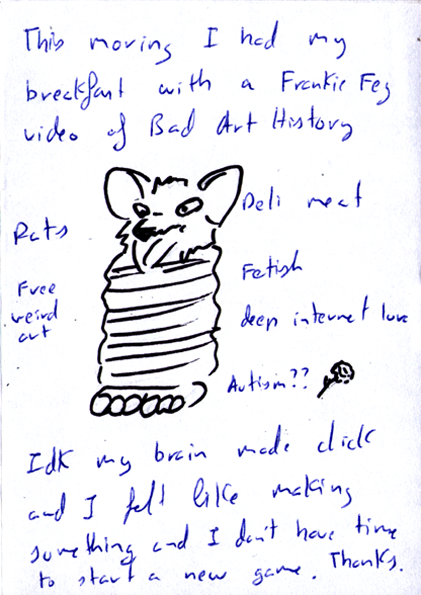 This moring I had my
breakfast with a Frankie Fey
video of Bad Art History
Rats
Free
weird
art
Deli meat
Fetish
deep internet lore
Autism??
Idk my brain made click
and I felt like making
something and I don't have time
to start a new game. Thanks.